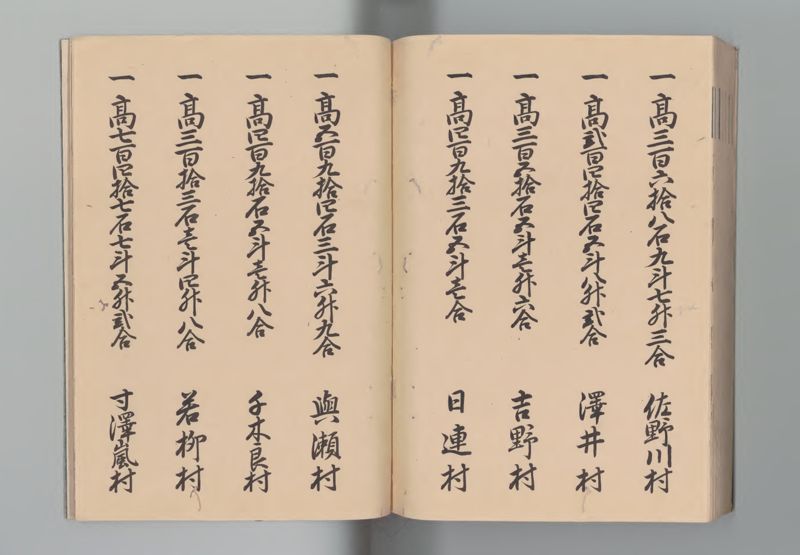 一 髙三百六拾八石九斗七升三合 佐野川村
一 髙弐百四拾四石五斗八升弐合 澤井村
一 髙三百五拾石五斗壱升六合 吉野村
一 髙四百九拾三石五斗壱合 日連村
一 髙五百九拾四石三斗六升九合 與瀬村
一 髙四百九拾石五斗壱升八合 千木良村
一 髙三百拾三石壱斗四升八合 若柳村
一 髙七百四拾七石七斗五升弐合 寸澤嵐村